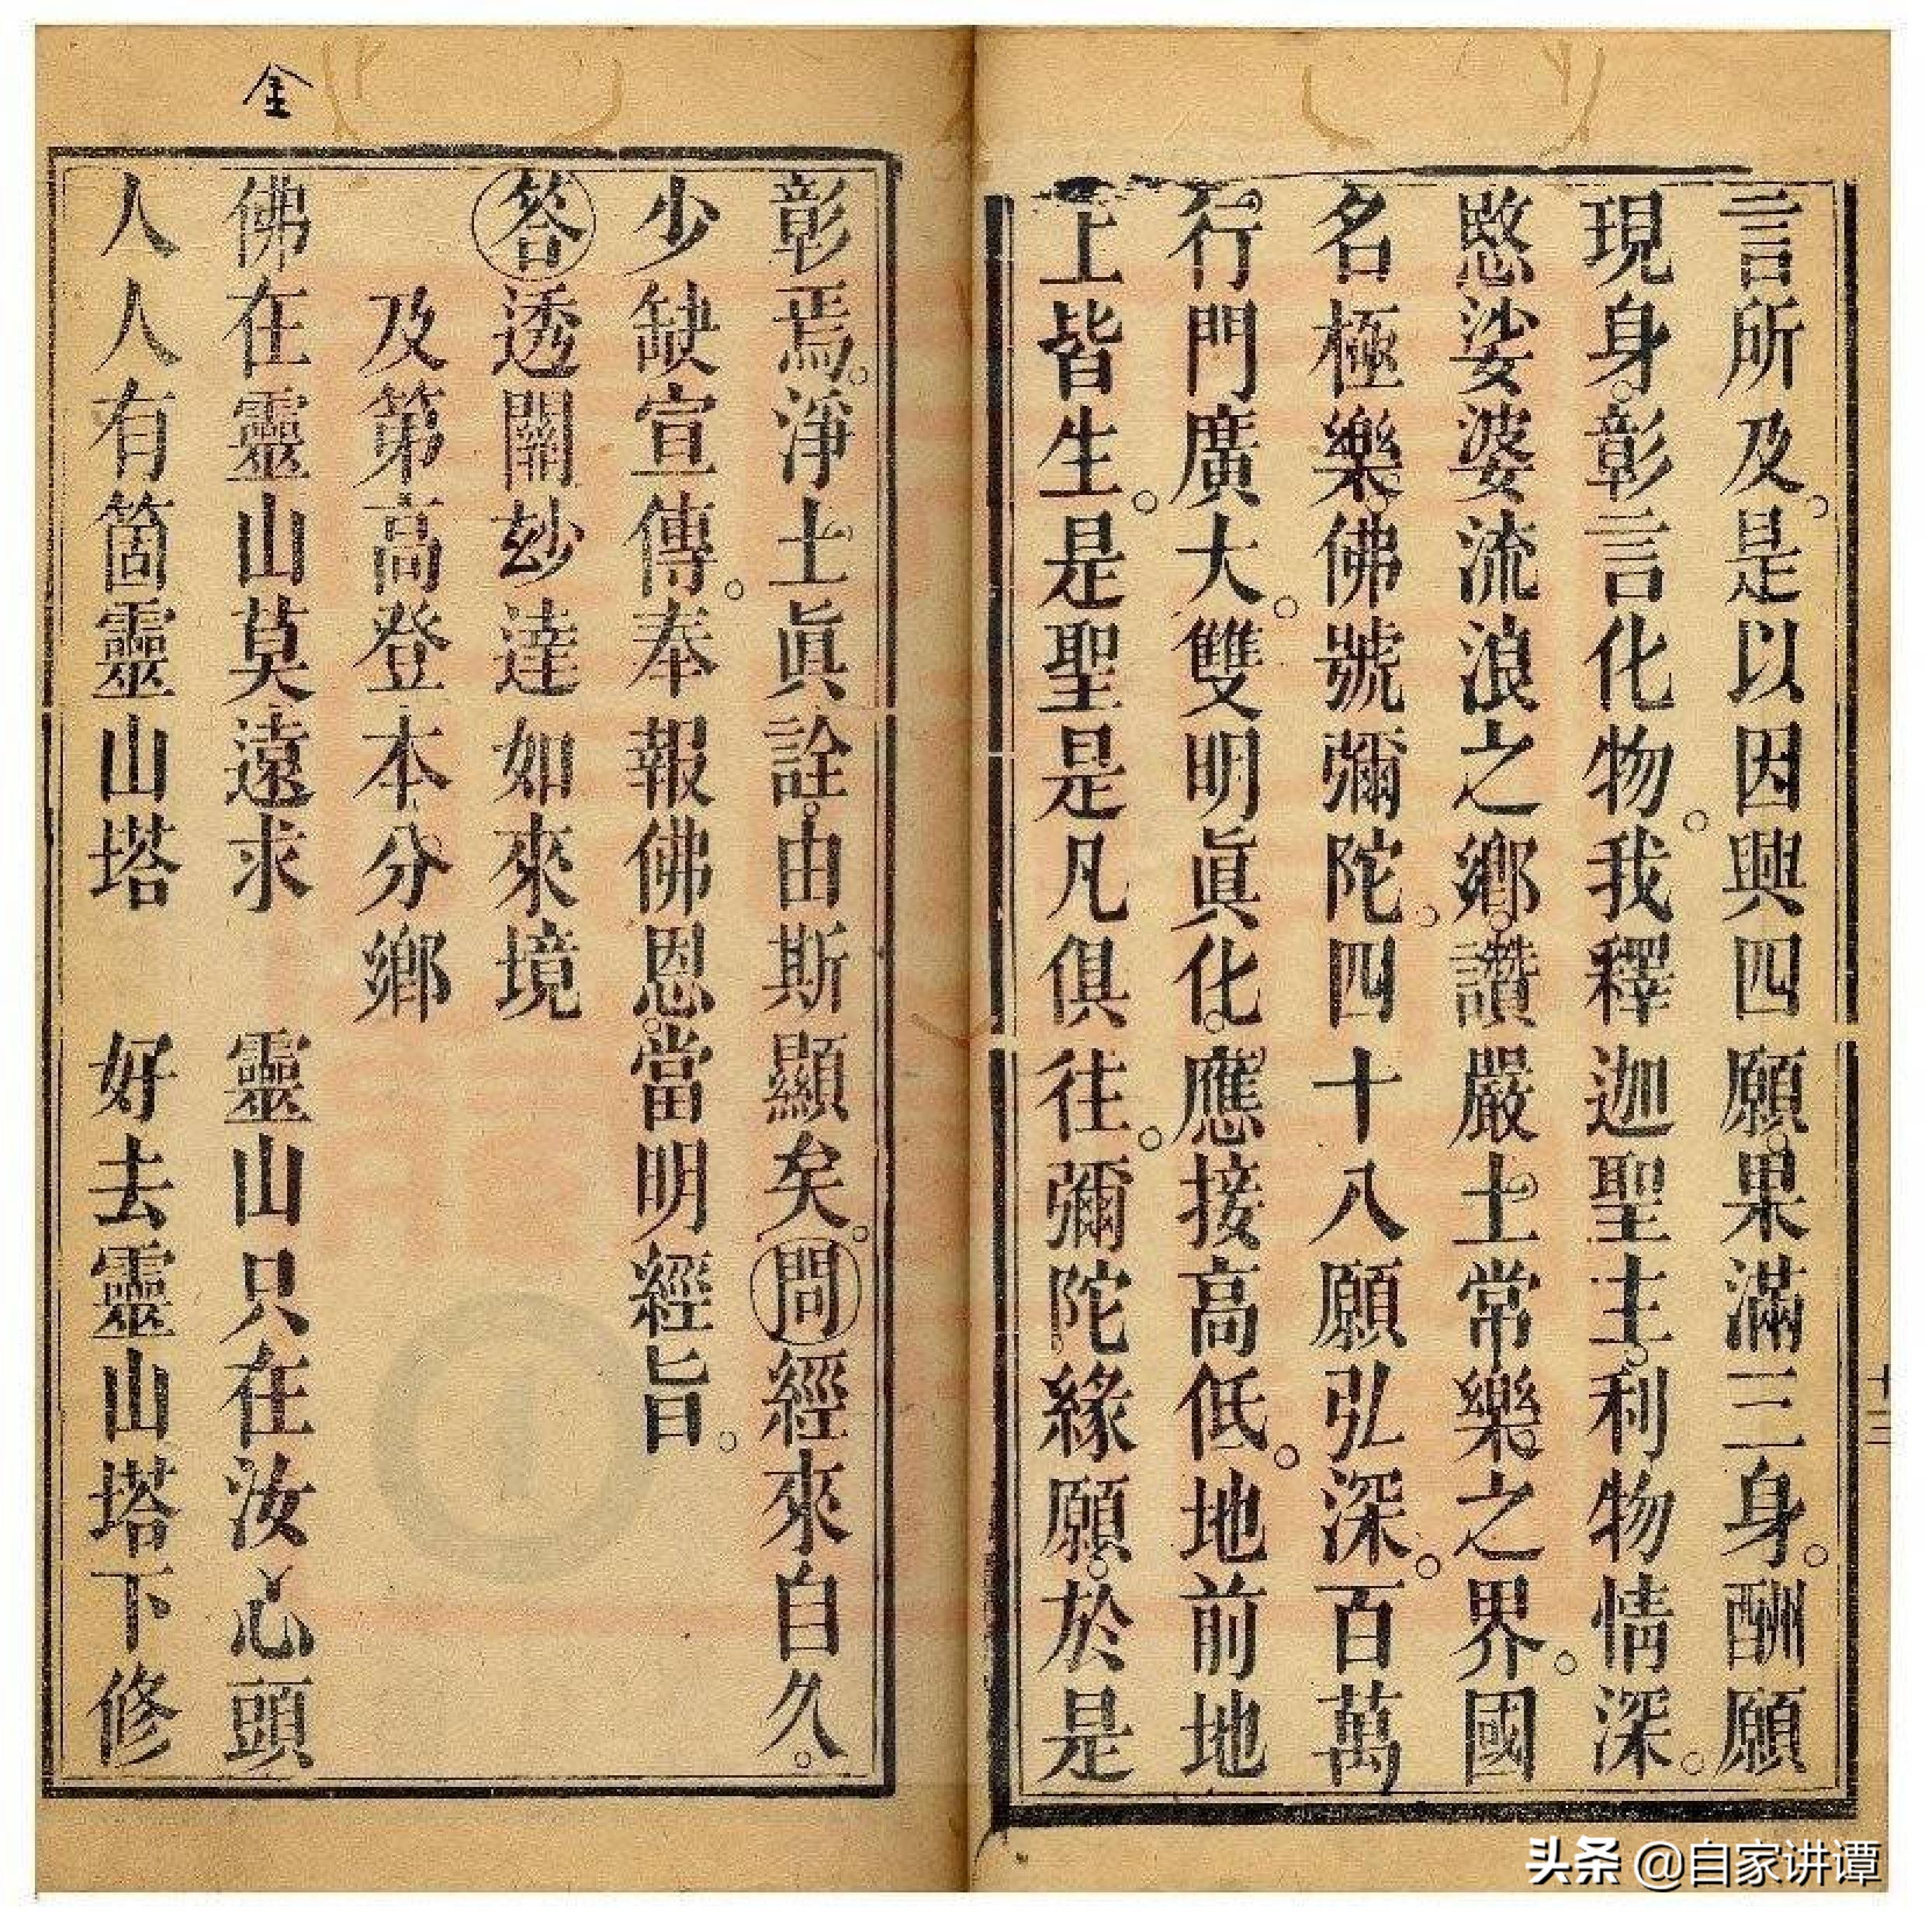 言所及。是以因興四願。果滿三身。酬願
現身。彰言化物。我釋迦聖主。利物情深。
愍娑婆流浪之鄉。讚嚴土常樂之界。國
名極樂。佛號彌陀。四十八願弘深。百萬
行門廣大。雙明眞化。應接高低。地前地
上皆生。是聖是凡俱往。彌陀緣願。於是
十三
金
彰焉。淨土眞詮。由斯顯矣。問經來自久。
少缺宣傳。奉報佛恩。當明經旨。
答透關玅達如來境
及第高登本分鄉
佛在靈山莫遠求 靈山只在汝心頭
人人有箇靈山塔 好去靈山塔下修
头条 @自家讲谭